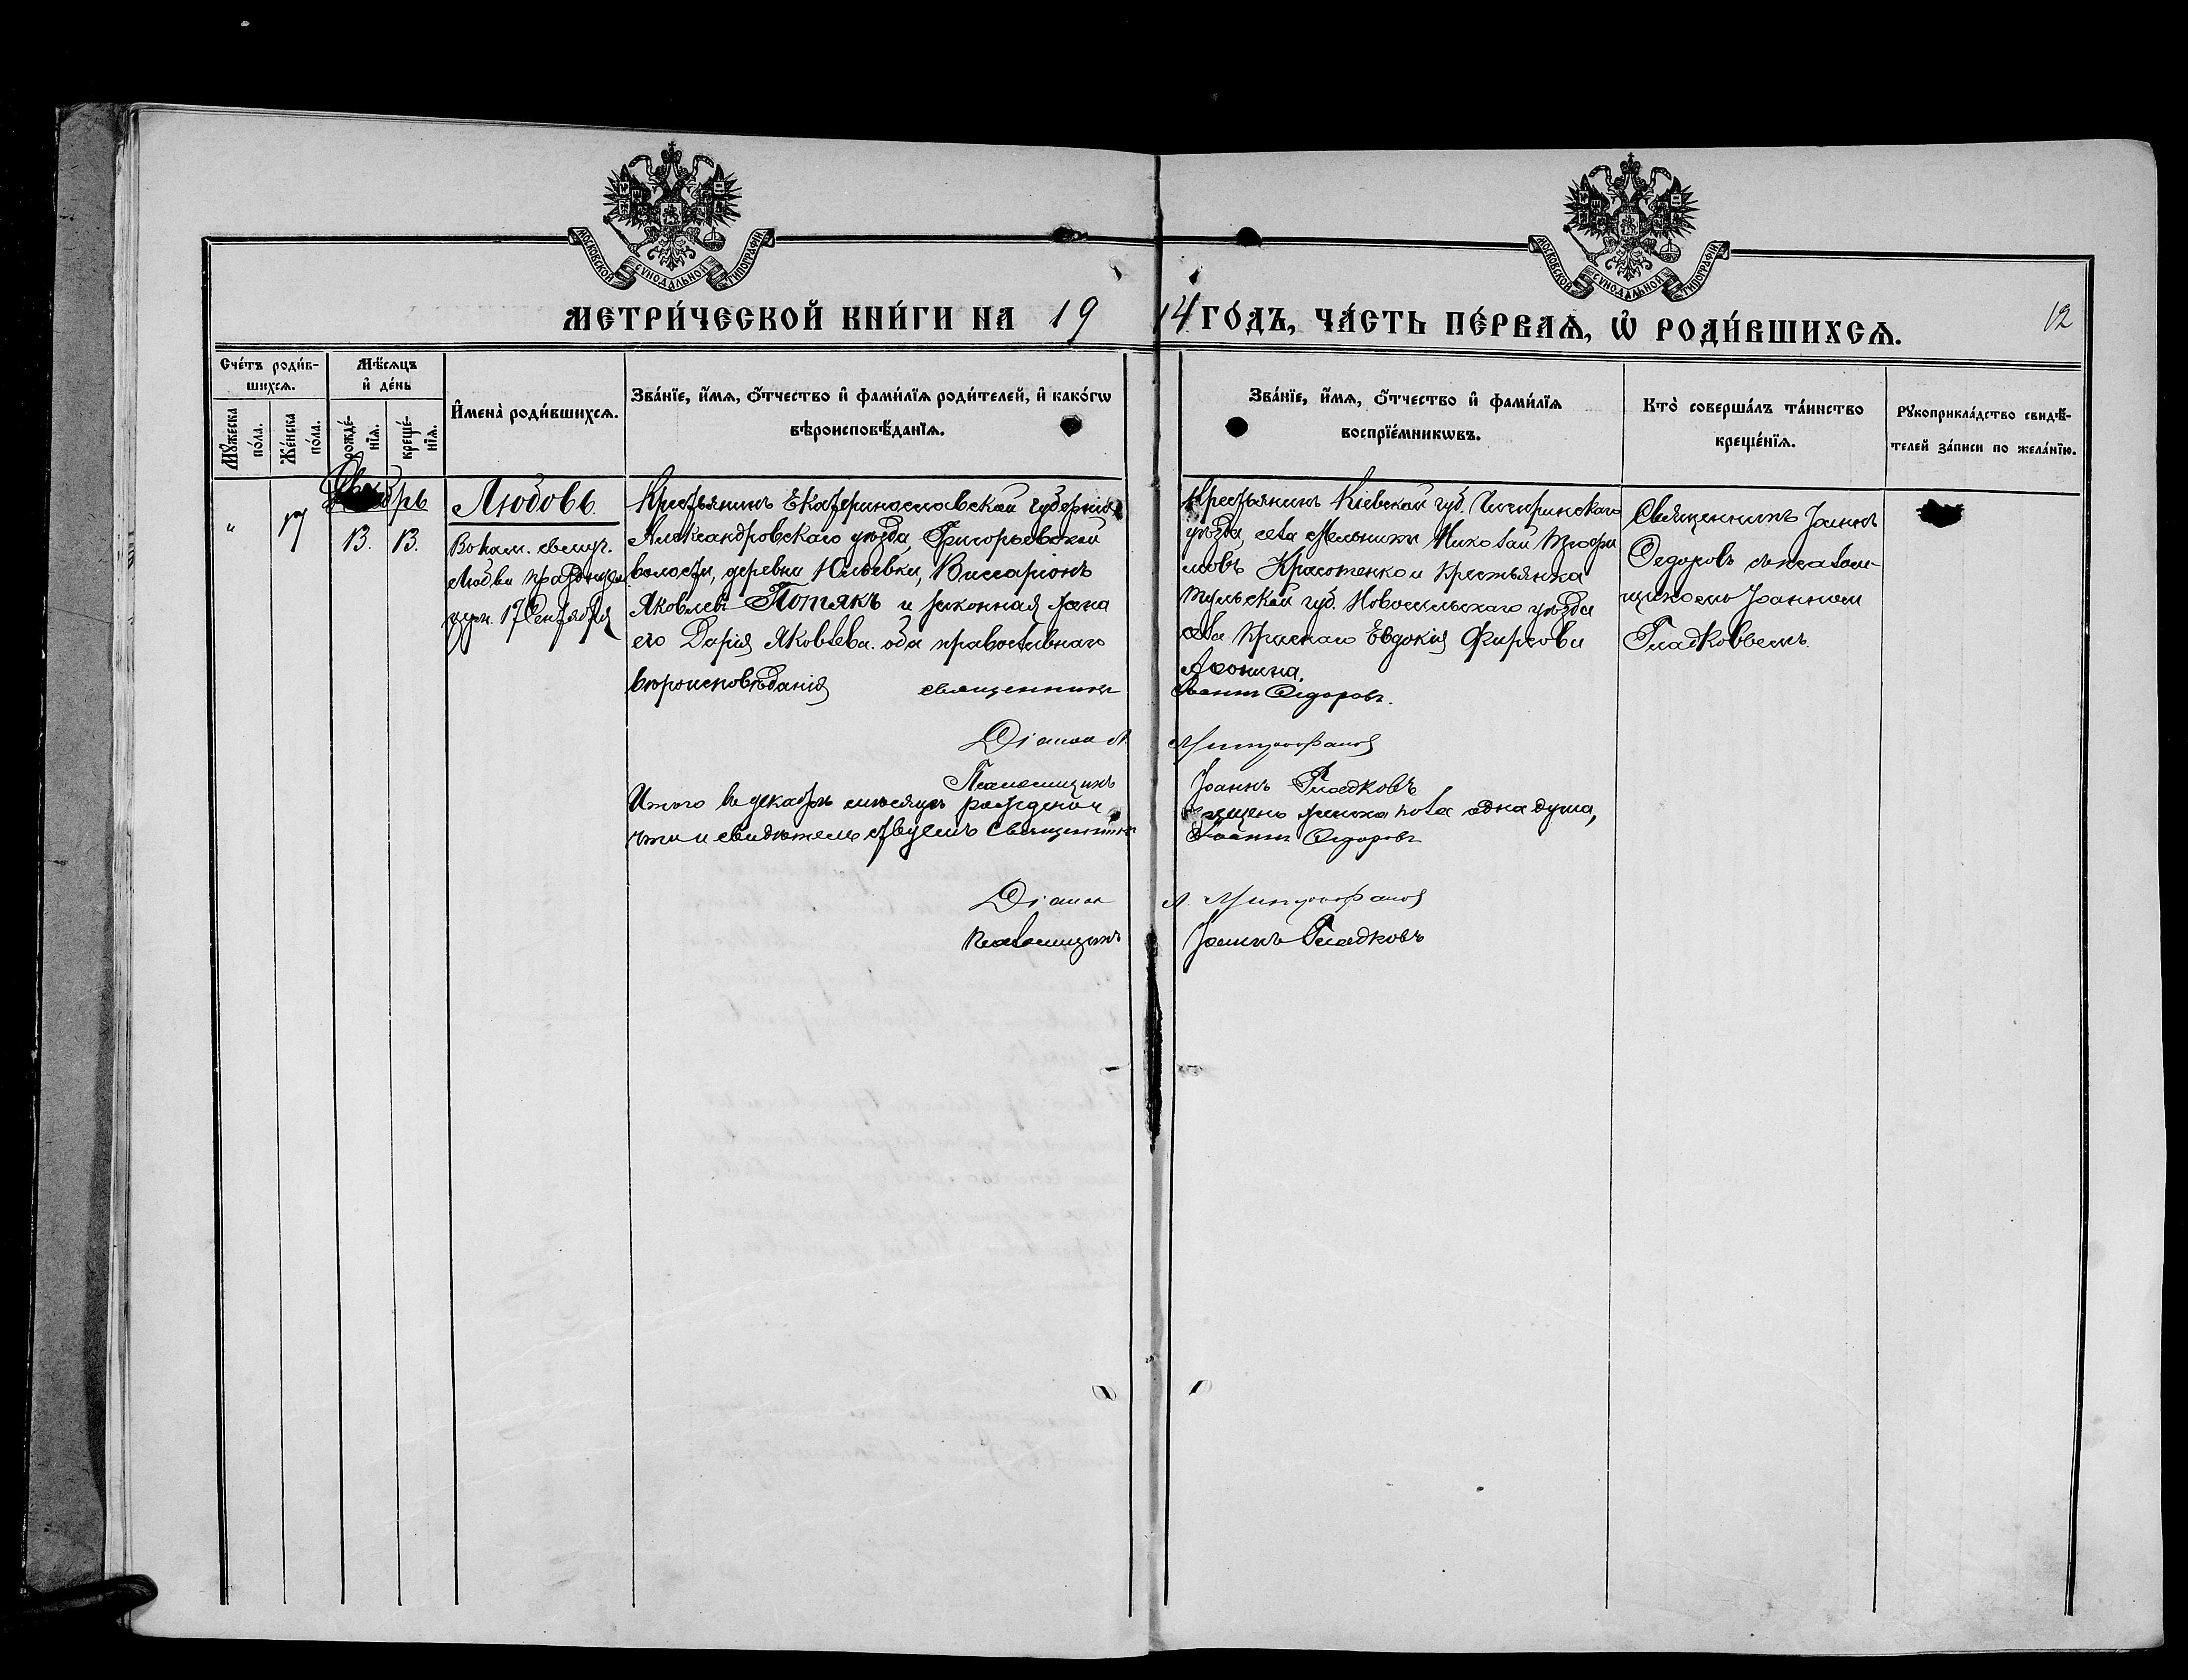 МОСКОВСКОЙ СѴНОДАЛЬНОЙ ТИПОГРАФІИ
МОСКОВСКОЙ СѴНОДАЛЬНОЙ ТИПОГРАФІИ
МЕТРИ́ЧЕСКОЙ КНИ́ГИ НА 19 14 ГО́ДЪ, ЧА́СТЬ ПЕ́РВАѦ, Ѡ҆ РОДИ́ВШИХСѦ.
12
Сче́тъ роди́в-
шихсѧ.
Мꙋ́жеска по́ла.
Же́нска по́ла.
Мѣ́сѧцъ
и҆ де́нь
рожде́-
нїѧ.
креще́-
нїѧ.
И҆мена̀ роди́вшихсѧ.
Зва́нїе, и҆́мѧ, ѻ҆́тчество и҆ фами́лїѧ роди́телей, и҆ како́гѡ
вѣроисповѣ́данїѧ.
Зва́нїе, и҆́мѧ, ѻ҆́тчество и҆ фами́лїѧ
воспрїе́мникѡвъ.
Кто̀ соверша́лъ та́инство
креще́нїѧ.
Рꙋкоприкла́дство свидѣ́-
телей за́писи по жела́нїю.
"
17
13.
13.
Любовь.
Во пам. св. муч.
Любви празднуем.
церк. 17 Сентября
Крестьянинъ Екатеринославской губерніи
Александровскаго уѣзда, Григорьевской
волости, деревни Юльевки, Виссаріонъ
Яковлевъ Потякъ и законная жена
его Дарія Яковлева. оба православнаго
вѣроисповѣданія
Крестьянинъ Кіевской губ. Чигиринскаго
уѣзда, села Мельники Николай Трофи
мовъ Красотенко и крестьянка
Тульской губ. Новосильскаго уѣзда
села Краснаго Евдокія Фирсова
Афонина.
Священникъ Іоаннъ
Федоровъ съ псалом-
щикомъ Іоанномъ
Гладковымъ.
священникъ Іоаннъ Ѳедоровъ.
Діакон А. Митрофанов
Псаломщикъ Іоаннъ Гладковъ
Итого въ декабрѣ мѣсяцѣ рожденных
крещено женска пола одна душа,
что и свидѣтельствуемъ Священникъ Іоаннъ Ѳедоровъ
Діакон А. Митрофанов
Псаломщикъ Іоаннъ Гладковъ